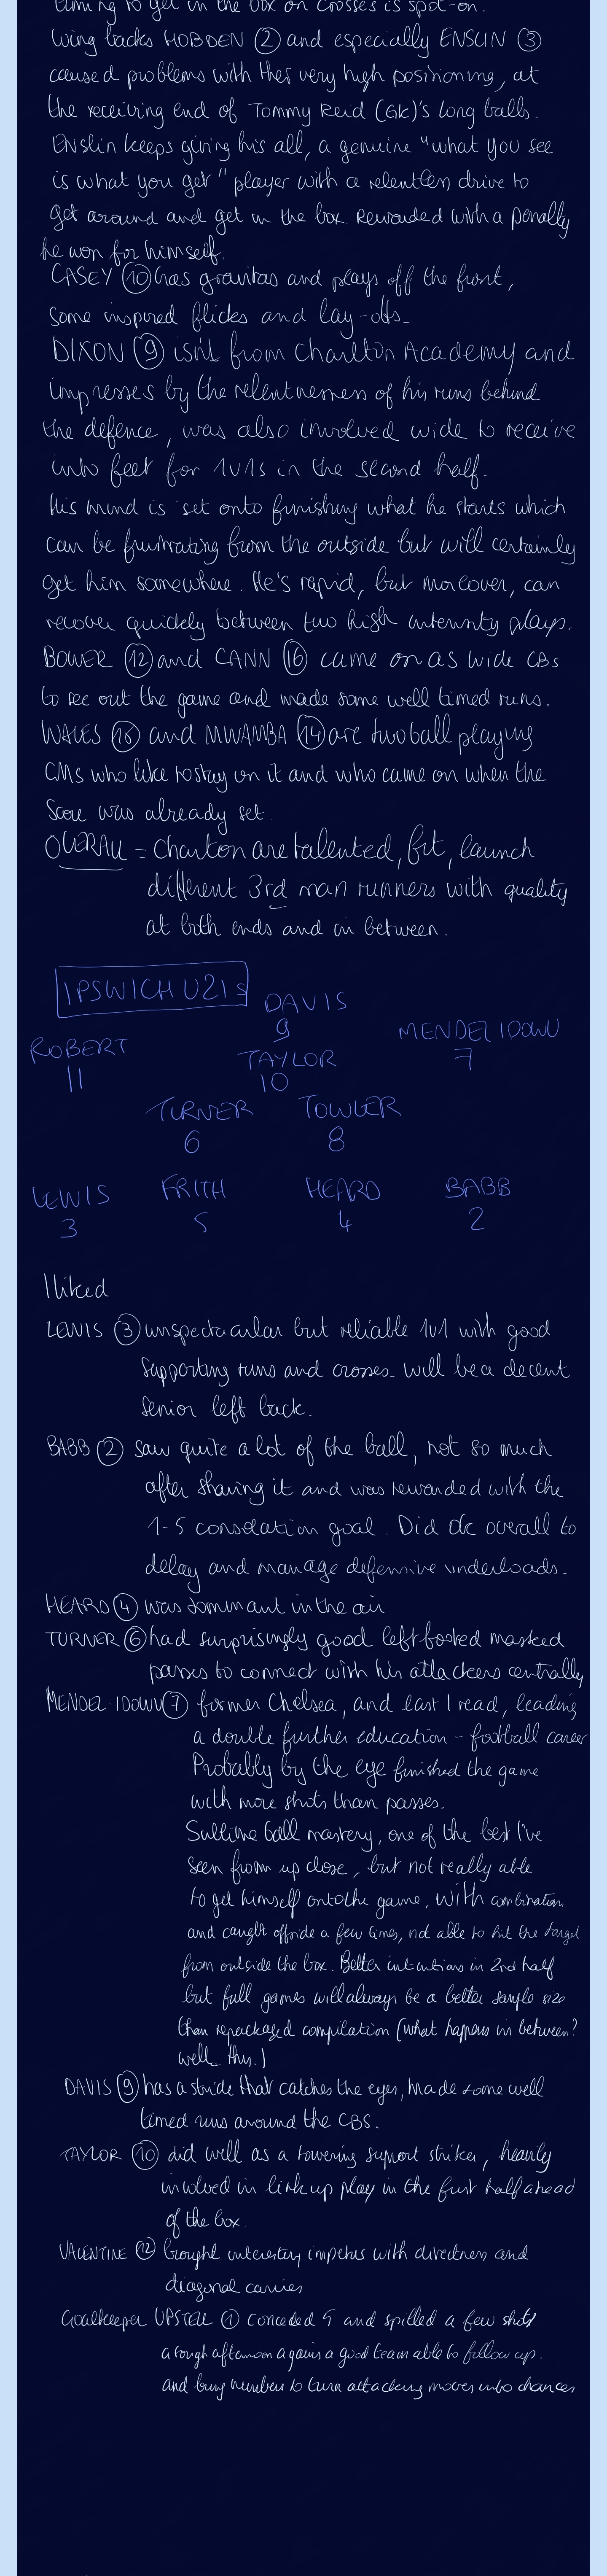 timing to get in the box on crosses is spot-on.
Wing backs HOBDEN (2) and especially ENSLIN (3)
caused problems with ther very high positioning, at
the receiving end of Tommy Reid (GK)'s long balls.
ENslin keeps giving his all, a genuine "what you see
is what you get" player with a relentless drive to
get around and get in the box. Rewarded with a penalty
he won for himself.
CASEY (10) has gravitas and plays off the front,
some inspired flicks and lay-offs.
DIXON (9) isn't from Charlton Academy and
impresses by the relentnessness of his runs behind
the defence, was also involved wide to receive
into feet for 1v1s in the second half.
His mind is set onto finishing what he starts which
can be frustrating from the outside but will certainly
get him somewhere. He's rapid, but moreover, can
recover quickly between two high intensity plays.
BOWER (12) and CANN (16) came on as wide CBs
to see out the game and made some well timed runs.
WALES (18) and MWAMBA (14) are two ball playing
CMs who like to stay on it and who came on when the
score was already set.
OVERALL = Charlton are talented, fit, launch
different 3rd man runners with quality
at both ends and in between.
IPSWICH U21s
DAVIS
9
MENDEL IDOWU
7
ROBERT
11
TAYLOR
10
TURNER
6
TOWLER
8
LEWIS
3
FRITH
5
HEARD
4
BABB
2
I liked
LEWIS (3) unspectacular but reliable 1v1 with good
supporting runs and crosses. Will be a decent
senior left back.
BABB (2) saw quite a lot of the ball, not so much
after sharing it and was rewarded with the
1-5 consolation goal. Did Ok overall to
delay and manage defensive underloads.
HEARD (4) was dominant in the air
TURNER (6) had surprisingly good left footed masked
passes to connect with his attackers centrally
MENDEL-IDOWU (7) former Chelsea, and last I read, leading
a double further education - football career
Probably by the eye finished the game
with more shots than passes.
Sublime ball mastery, one of the best I've
seen from up close, but not really able
to get himself onto the game, with combinations
and caught offside a few times, not able to hit the target
from outside the box. Better intentions in 2nd half
but full games will always be a better sample size
than repackaged compilation (what happens in between?
well... this.)
DAVIS (9) has a stride that catches the eyes, made some well
timed runs around the CBS.
TAYLOR (10) did well as a towering support striker, heavily
involved in link up play in the first half ahead
of the box.
VALENTINE (12) brought interesting impetus with directness and
diagonal carries
Goalkeeper UPSTELL (1) conceded 5 and spilled a few shots
a tough afternoon agains a good team able to follow up.
and bring numbers to turn attacking moves into chances